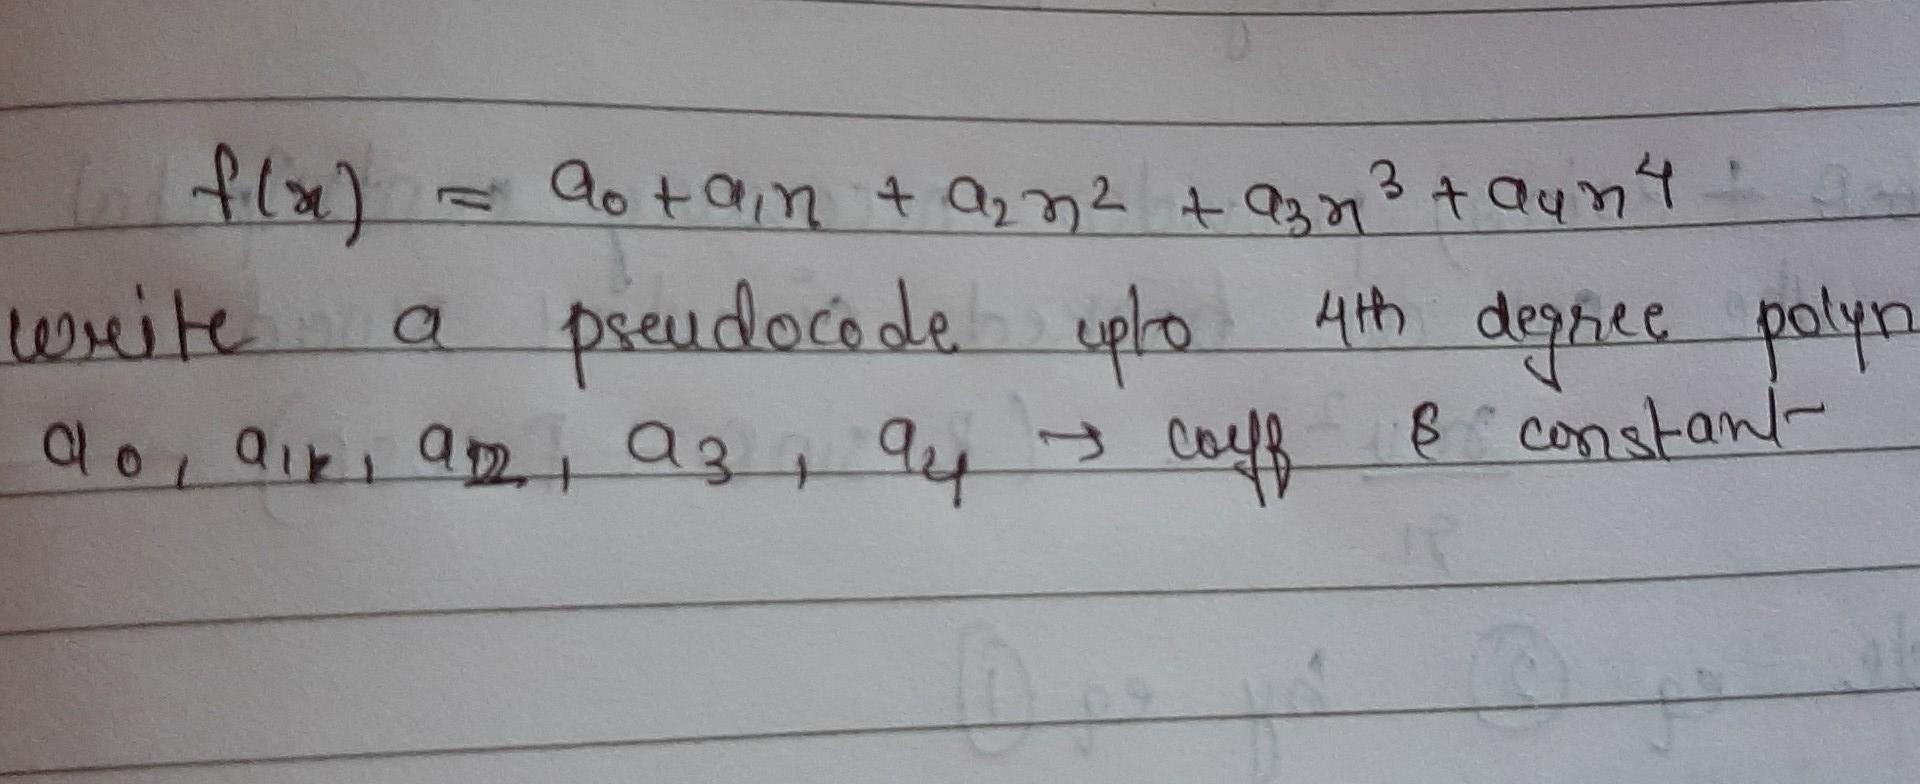 f(x) = a₀ + a₁x + a₂x² + a₃x³ + a₄x⁴
write a pseudocode upto 4th degree polyn
a₀, a₁, a₂, a₃, a₄ → coeff & constant